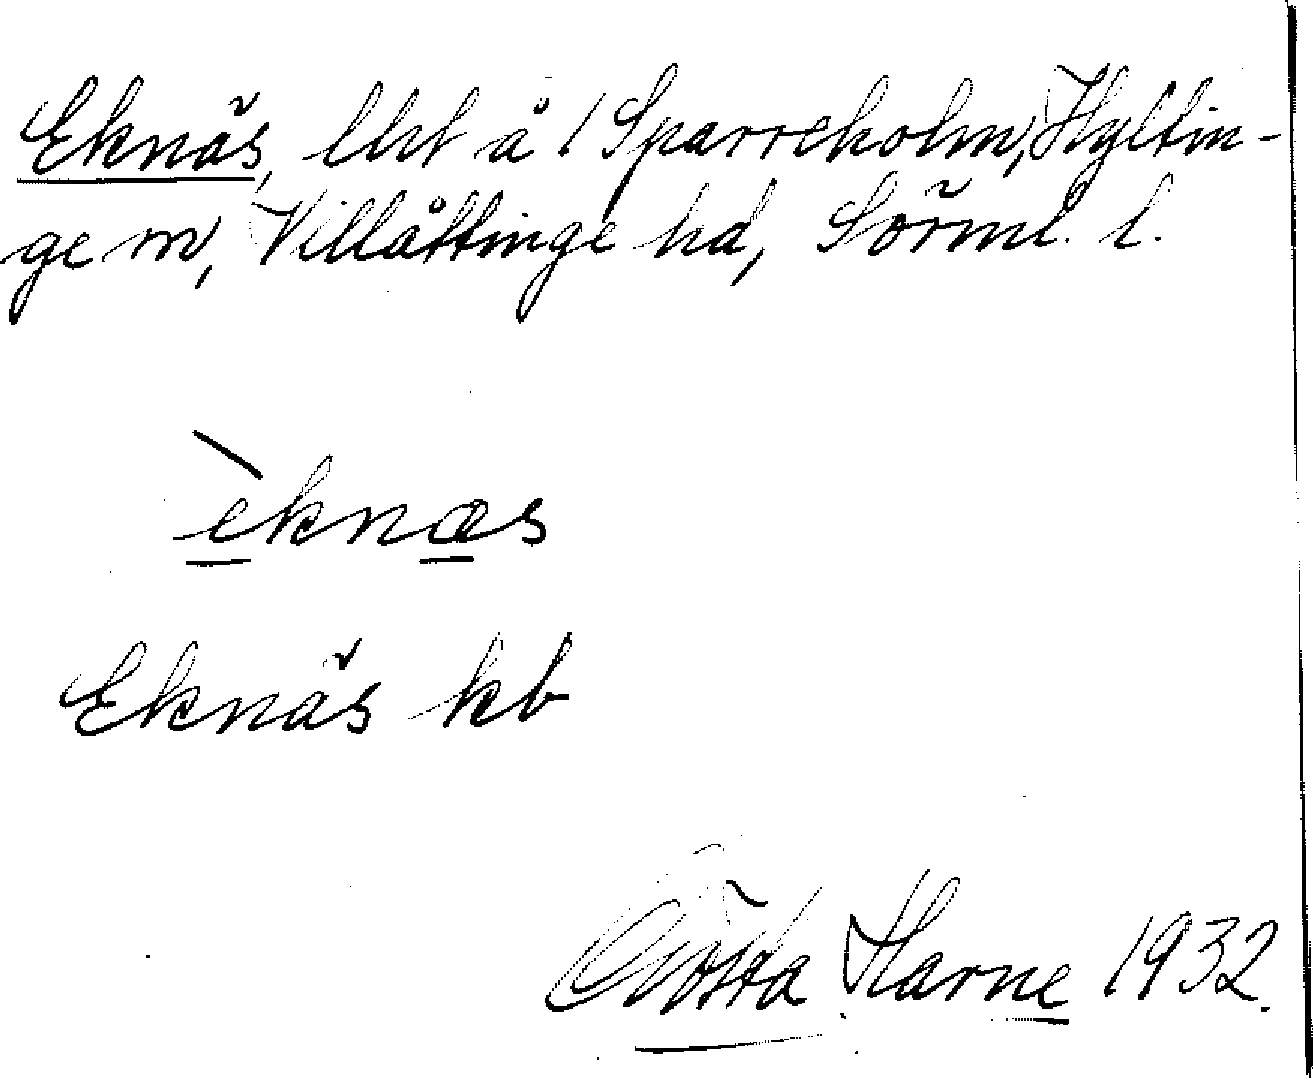 Eknäs, lht å 1 Sparreholm, Hyltin-
ge sn, Villåttinge hd, Sörml. l.
èknæs
Eknäs kb
Gösta Harne 1932.